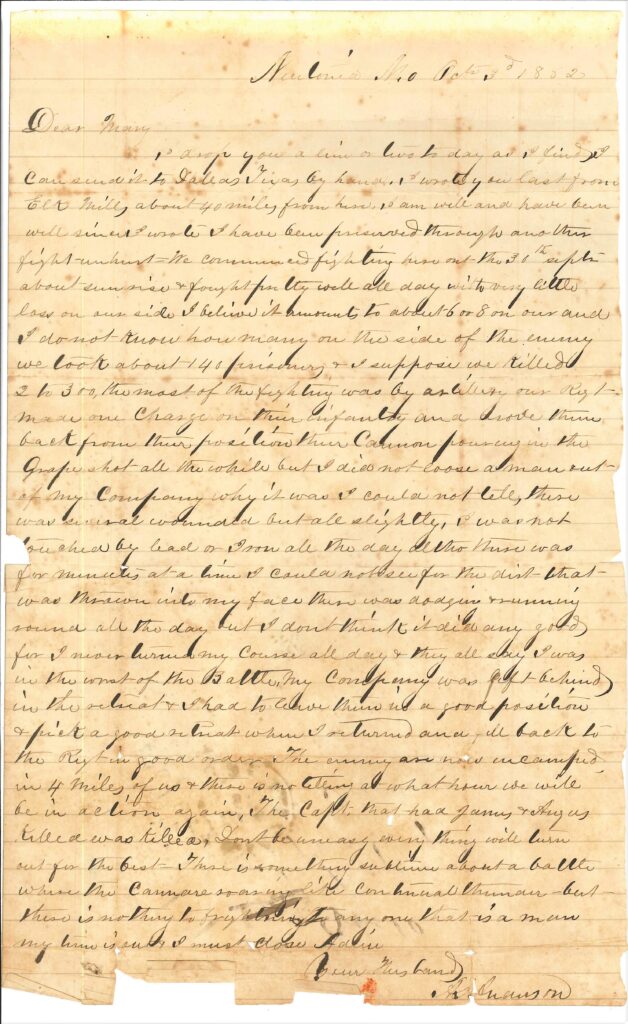 Newtonia Mo Octr 3d 1862
Dear Mary
I drop you a line or two to day as I find I
can send it to Dallas Texas by hand. I wrote you last from
Elk Mills about 40 miles from here, I am well and have been
well since I wrote I have been preserved through another
fight unhurt = We commenced fighting here out the 30th septr
about sun rise & fought pretty well all day with very little
loss on our side I believe it amounts to about 6 or 8 on our and
I do not know how many on the side of the enemy
we took about 140 prisoners & I suppose we killed
2 to 300, the most of the fighting was by artillery our Regt
made one charge on their infantry and drove them
back from their position their Cannon pouring in the
Grape shot all the while but I did not loose a man out
of my Company why it was I could not tell, there
was several wounded but all slightly, I was not
touched by lead or Iron all the day altho there was
for minutes at a time I could not see for the dirt that
was thrown into my face there was dodgin & running
round all the day but I dont think it did any good
for I never turned my course all day & they all say I was
in the worst of the Battle, my Company was left behind
in the retreat & I had to leave them in a good position
& pick a good retreat when I returned and fell back to
the Regt in good order The enemy are now incamped
in 4 miles of us & there is no telling at what hour we will
be in action again, The Capt. that had James & Angus
killed was killed, Dont be uneasy every thing will turn
out for the best There is something sublime about a battle
where the Cannon are roaring like continual thunder but
there is nothing to frightning to any one that is a man
my time is out & I must close Adieu
Your Husband